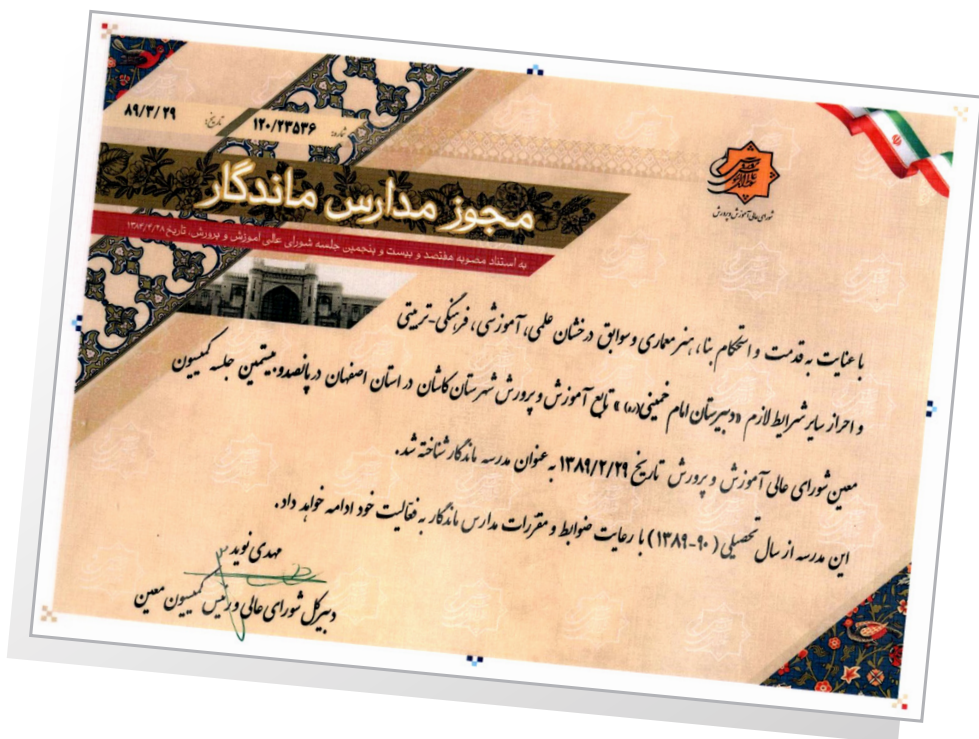 شماره: ۱۲۰/۲۳۵۳۶
تاریخ: ۸۹/۳/۲۹
شورای عالی آموزش و پرورش
مجوز مدارس ماندگار
به استناد مصوبه هفتصد و بیست و پنجمین جلسه شورای عالی آموزش و پرورش، تاریخ ۱۳۸۴/۴/۲۸
با عنایت به قدمت و استحکام بنا، هنر معماری و سوابق درخشان علمی، آموزشی، فرهنگی-تربیتی
و احراز سایر شرایط لازم «دبیرستان امام خمینی(ره)» تابع آموزش و پرورش شهرستان کاشان در استان اصفهان در پانصد و بیستمین جلسه کمیسیون
معین شورای عالی آموزش و پرورش تاریخ ۱۳۸۹/۲/۲۹ به عنوان مدرسه ماندگار شناخته شد.
این مدرسه از سال تحصیلی (۹۰-۱۳۸۹) با رعایت ضوابط و مقررات مدارس ماندگار به فعالیت خود ادامه خواهد داد.
مهدی نوید
دبیرکل شورای عالی و رئیس کمیسیون معین